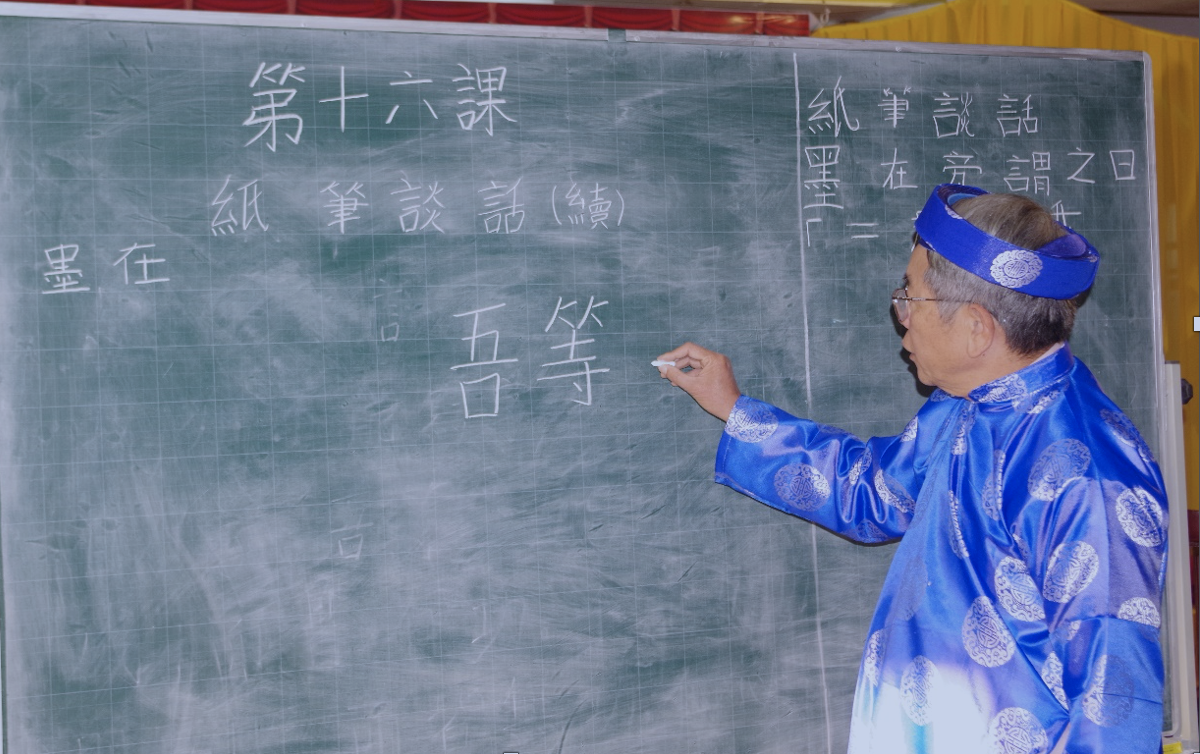 第十六課
紙筆談話(續)
墨在
吾等
紙筆談話
墨在旁謂之曰
「二